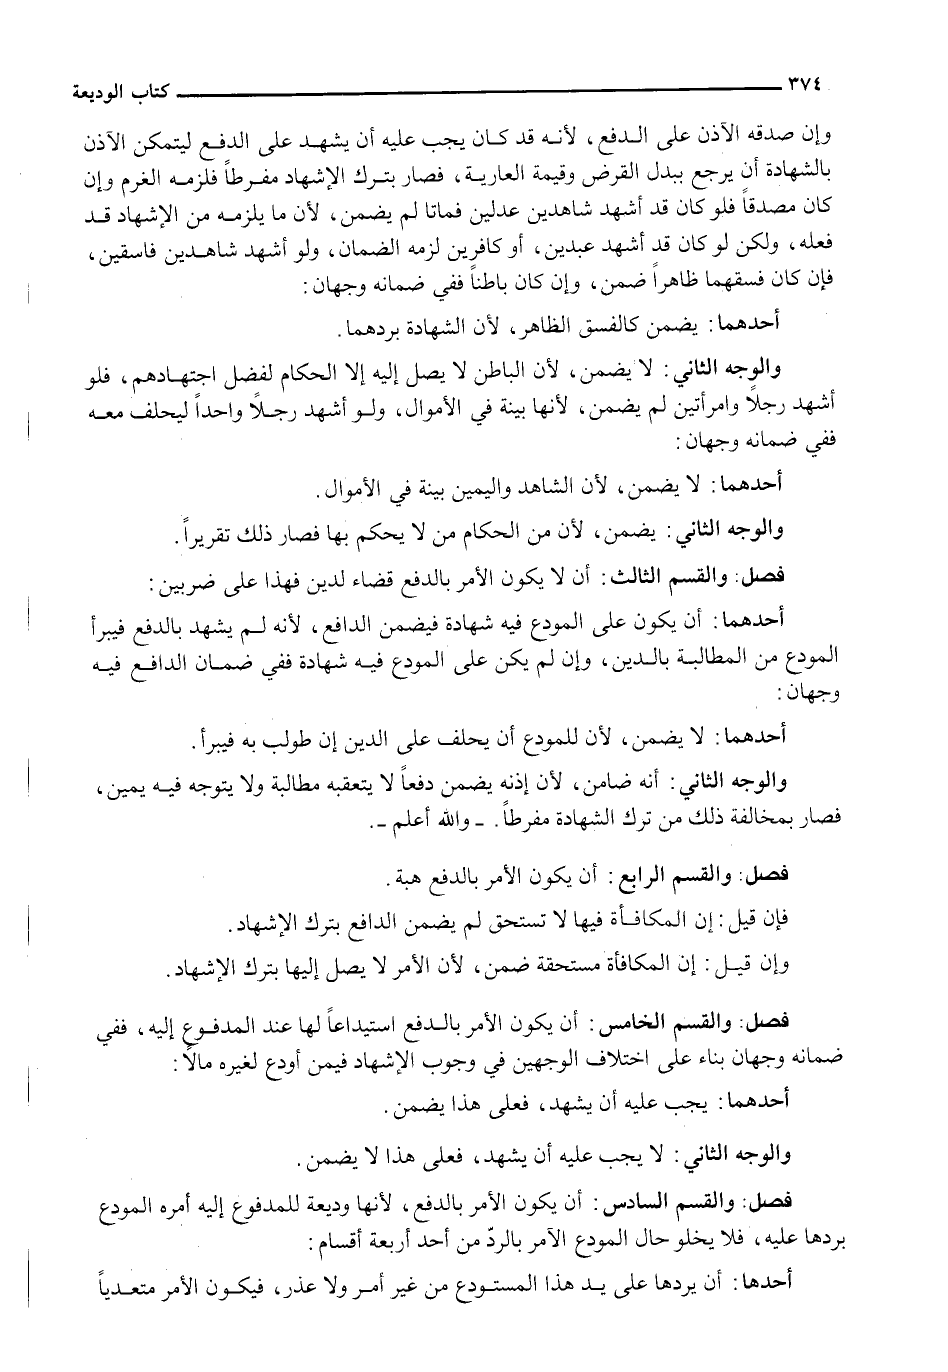 ٣٧٤ كتاب الوديعة
وإن صدقه الآذن على الدفع، لأنه قد كان يجب عليه أن يشهد على الدفع ليتمكن الآذن
بالشهادة أن يرجع ببدل القرض وقيمة العارية، فصار بترك الإشهاد مفرطاً فلزمه الغرم وإن
كان مصدقاً فلو كان قد أشهد شاهدين عدلين فماتا لم يضمن، لأن ما يلزمه من الإشهاد قد
فعله، ولكن لو كان قد أشهد عبدين، أو كافرين لزمه الضمان، ولو أشهد شاهدين فاسقين،
فإن كان فسقهما ظاهراً ضمن، وإن كان باطناً ففي ضمانه وجهان:
أحدهما: يضمن كالفسق الظاهر، لأن الشهادة بردهما.
والوجه الثاني: لا يضمن، لأن الباطن لا يصل إليه إلا الحكام لفضل اجتهادهم، فلو
أشهد رجلاً وامرأتين لم يضمن، لأنها بينة في الأموال، ولو أشهد رجلاً واحداً ليحلف معه
ففي ضمانه وجهان:
أحدهما: لا يضمن، لأن الشاهد واليمين بينة في الأموال.
والوجه الثاني: يضمن، لأن من الحكام من لا يحكم بها فصار ذلك تقريراً.
فصل: والقسم الثالث: أن لا يكون الأمر بالدفع قضاء لدين فهذا على ضربين:
أحدهما: أن يكون على المودع فيه شهادة فيضمن الدافع، لأنه لم يشهد بالدفع فيبرأ
المودع من المطالبة بالدين، وإن لم يكن على المودع فيه شهادة ففي ضمان الدافع فيه
وجهان:
أحدهما: لا يضمن، لأن للمودع أن يحلف على الدين إن طولب به فيبرأ.
والوجه الثاني: أنه ضامن، لأن إذنه يضمن دفعاً لا يتعقبه مطالبة ولا يتوجه فيه يمين،
فصار بمخالفة ذلك من ترك الشهادة مفرطاً. ـ والله أعلم ـ.
فصل: والقسم الرابع: أن يكون الأمر بالدفع هبة.
فإن قيل: إن المكافأة فيها لا تستحق لم يضمن الدافع بترك الإشهاد.
وإن قيل: إن المكافأة مستحقة ضمن، لأن الأمر لا يصل إليها بترك الإشهاد.
فصل: والقسم الخامس: أن يكون الأمر بالدفع استيداعاً لها عند المدفوع إليه، ففي
ضمانه وجهان بناء على اختلاف الوجهين في وجوب الإشهاد فيمن أودع لغيره مالاً:
أحدهما: يجب عليه أن يشهد، فعلى هذا يضمن.
والوجه الثاني: لا يجب عليه أن يشهد، فعلى هذا لا يضمن.
فصل: والقسم السادس: أن يكون الأمر بالدفع، لأنها وديعة للمدفوع إليه أمره المودع
بردها عليه، فلا يخلو حال المودع الآمر بالردّ من أحد أربعة أقسام:
أحدها: أن يردها على يد هذا المستودع من غير أمر ولا عذر، فيكون الأمر متعدياً